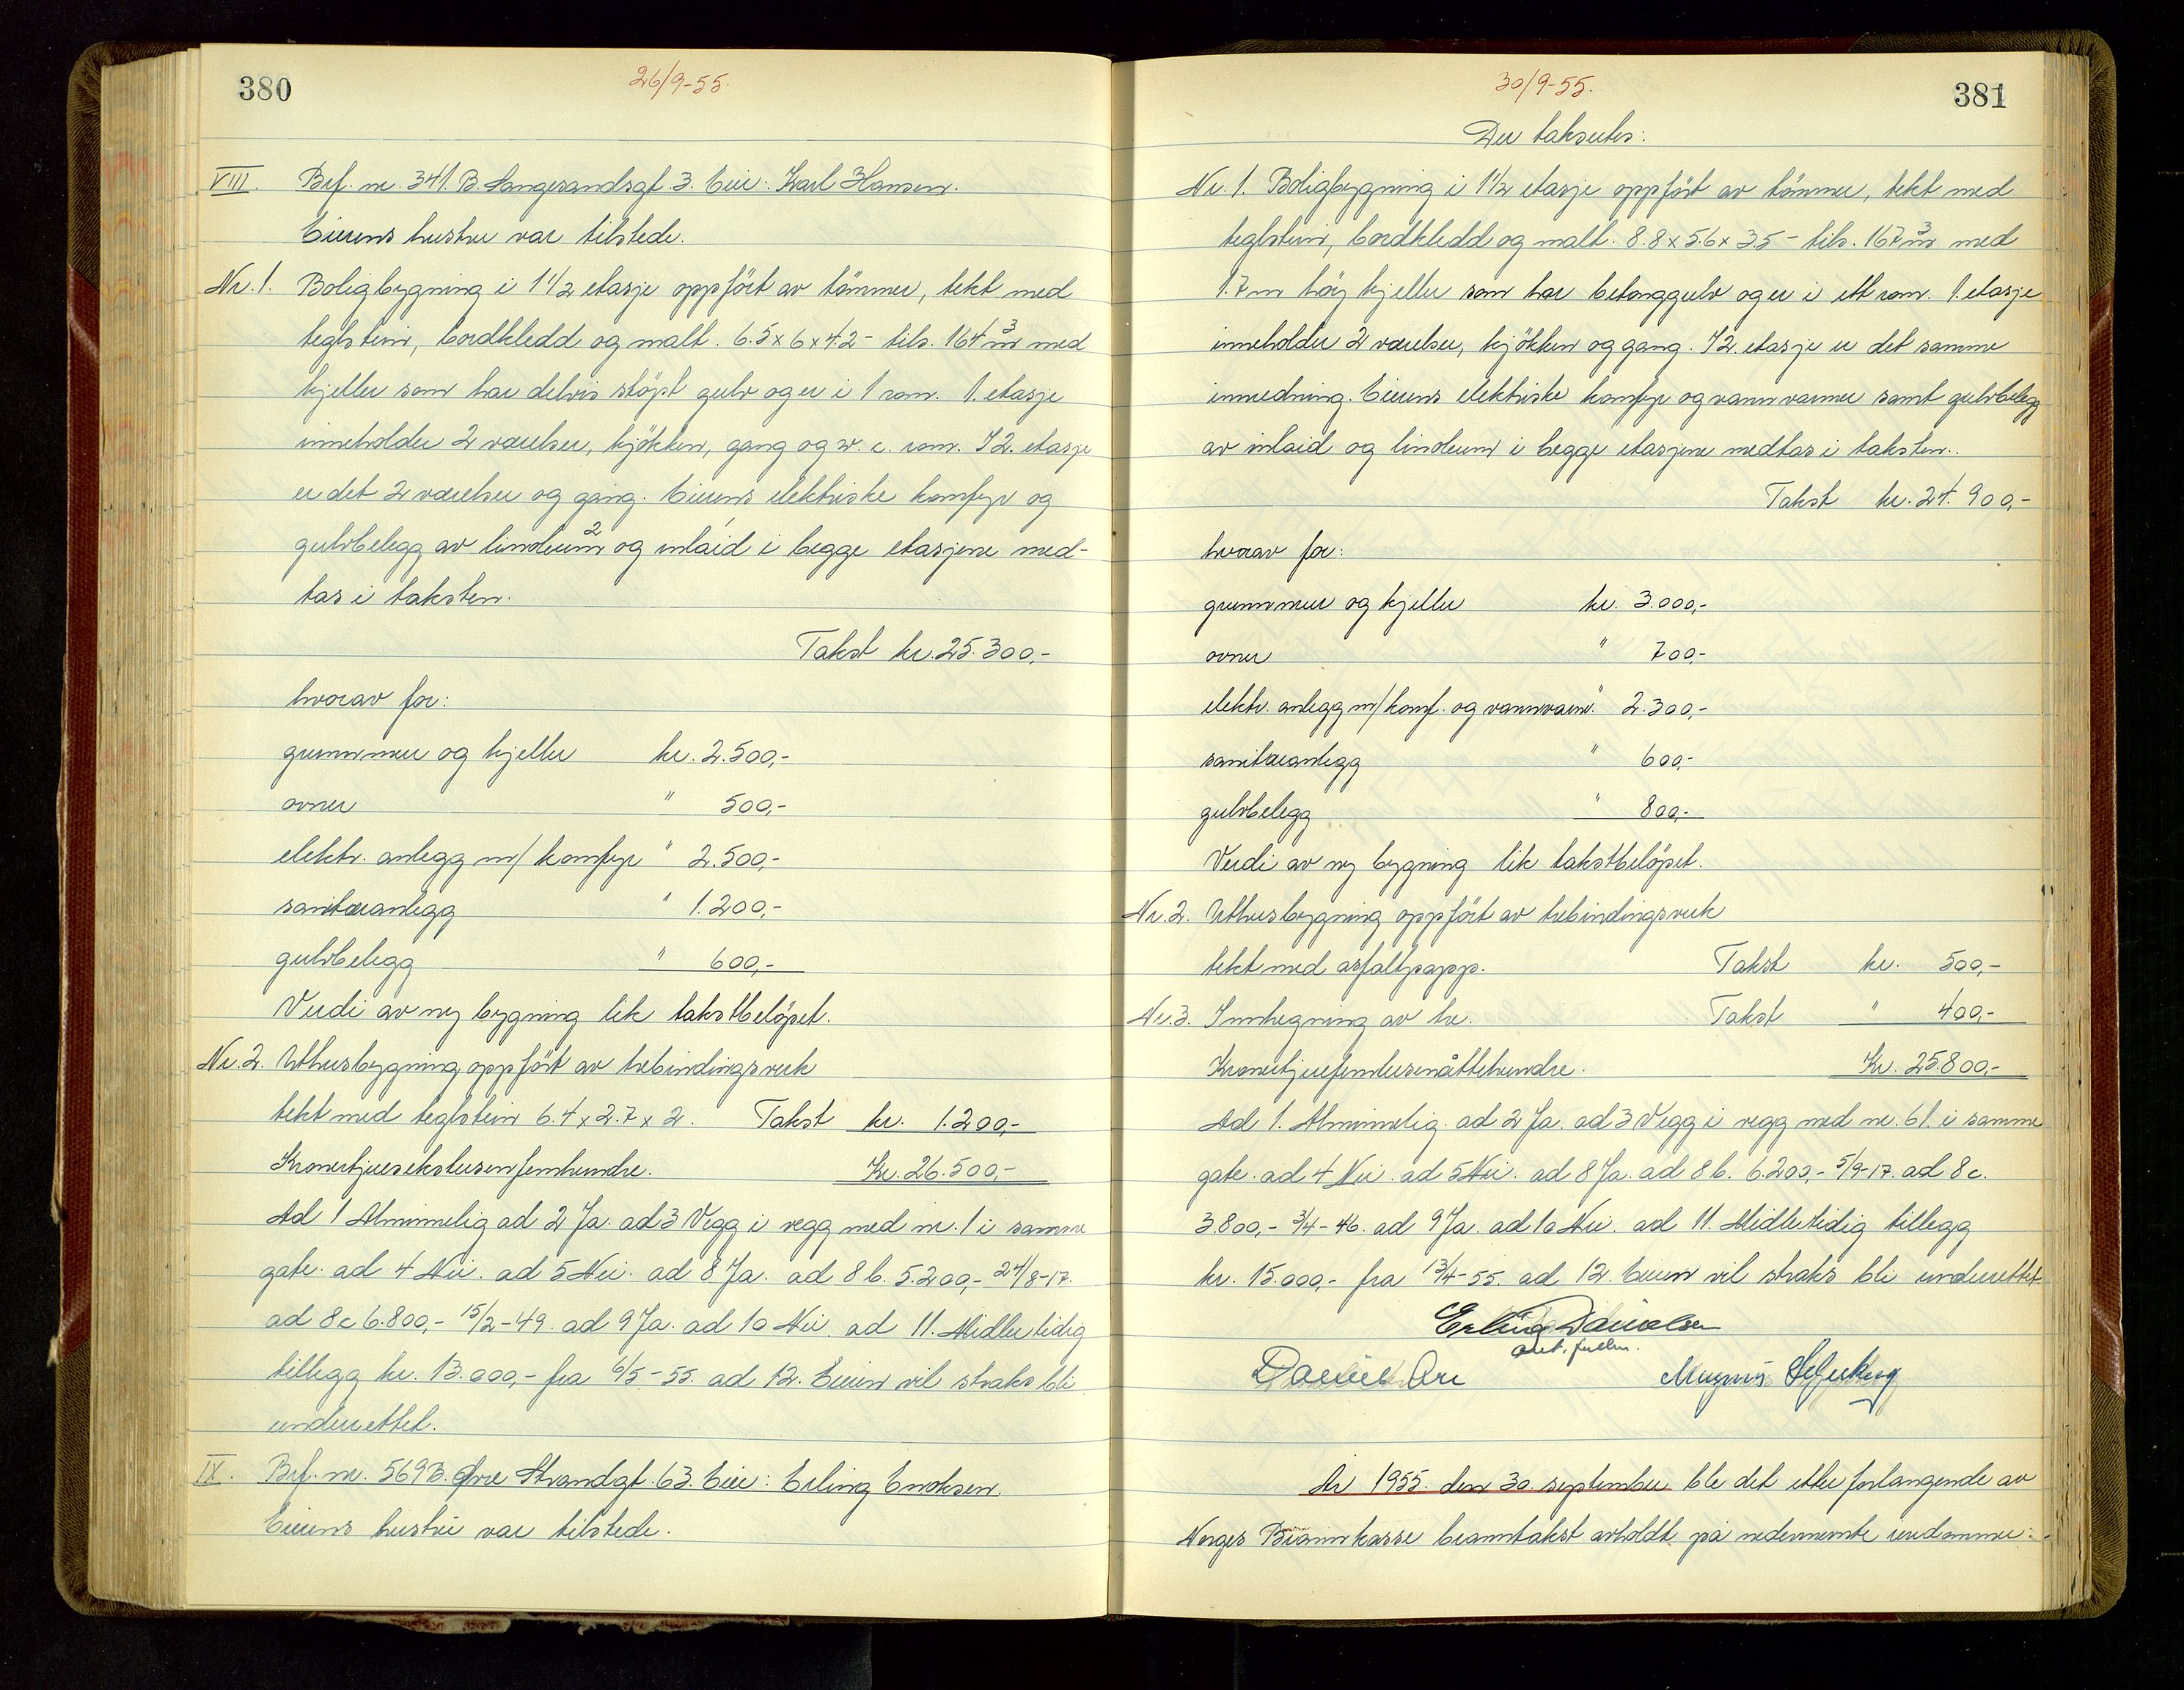 380
26/9-55.
VIII. Brf. nr. 341. B. Langesandsgt. 3. Eier: Karl Hansen.
Eierens hustru var tilstede.
Nr. 1. Boligbygning i 1 1/2 etasje oppført av tömmer, tekt med
teglstein, bordkledd og malt. 6.5 x 6 x 4.2 - tils. 164 m³ med
kjeller som har delvis stöpt gulv og er i 1 rom. 1. etasje
inneholder 2 værelser, kjökken, gang og w.c. rom. I 2. etasje
er det 2 værelser og gang. Eierens elektriske komfyr og
gulvbelegg av linoleum og inlaid i begge etasjene med-
tas i taksten.
Takst kr. 25.300,-
hvorav for:
grunnmur og kjeller kr. 2.500,-
ovner " 500,-
elektr. anlegg m/ komfyr " 2.500,-
sanitæranlegg " 1.200,-
gulvbelegg " 600,-
Verdi av ny bygning lik takstbelöpet.
Nr. 2. Uthusbygning oppfört av trebindingsverk
tekt med teglstein 6.4 x 2.7 x 2. Takst kr. 1.200,-
Kronertjuesekstusenfemhundre. Kr. 26.500,-
Ad 1 Alminnelig ad 2 Ja. ad 3 Vegg i vegg med nr. 1 i samme
gate. ad 4 Nei. ad 5 Nei. ad 8 Ja. ad 8 b. 5.200,- 24/8-17.
ad 8c 6.800,- 15/2-49. ad 9 Ja. ad 10 Nei. ad 11. Midlertidig
tillegg kr. 13.000,- fra 6/5-55. ad 12. Eieren vil straks bli
underrettet.
IX. Brf. nr. 569 B. Øvre Strandgt. 63. Eier: Erling Enoksen.
Eierens hustru var tilstede.
30/9-55.
381
Der takseres:
Nr. 1. Boligbygning i 1 1/2 etasje oppfört av tömmer, tekt med
teglstein, bordkledd og malt. 8.8 x 5.6 x 3.5 - tils. 167 m³ med
1.7 m höy kjeller som har betonggulv og er i ett rom. 1. etasje
inneholder 2 værelser, kjökken og gang. I 2. etasje er det samme
innredning. Eierens elektriske komfyr og vannvarmer samt gulvbelegg
av inlaid og linoleum i begge etasjene medtas i taksten.
Takst kr. 24.900,-
hvorav for:
grunnmur og kjeller kr. 3.000,-
ovner " 700,-
elektr. anlegg m/ komf. og vannvarm. " 2.300,-
sanitæranlegg " 600,-
gulvbelegg " 800,-
Verdi av ny bygning lik takstbelöpet.
Nr. 2. Uthusbygning oppfört av trebindingsverk
tekt med asfaltpapp. Takst kr. 500,-
Nr. 3. Innhegning av tre. Takst " 400,-
Kronertjuefemtusenåttehundre. Kr. 25.800,-
Ad 1. Alminnelig. ad 2 Ja. ad 3 Vegg i vegg med nr. 61. i samme
gate. ad 4 Nei. ad 5 Nei. ad 8 Ja. ad 8 b. 6.200,- 5/9-17. ad 8 c.
3.800,- 3/4-46. ad 9 Ja. ad 10 Nei. ad 11. Midlertidig tillegg
kr. 15.000,- fra 13/4-55. ad 12. Eieren vil straks bli underrettet.
Erling Danielsen
Daniel Magnus
År 1955. den 30. september. ble det etter forlangende av
Norges Brannkasse branntakst avholdt på nedennevnte eiendommer: